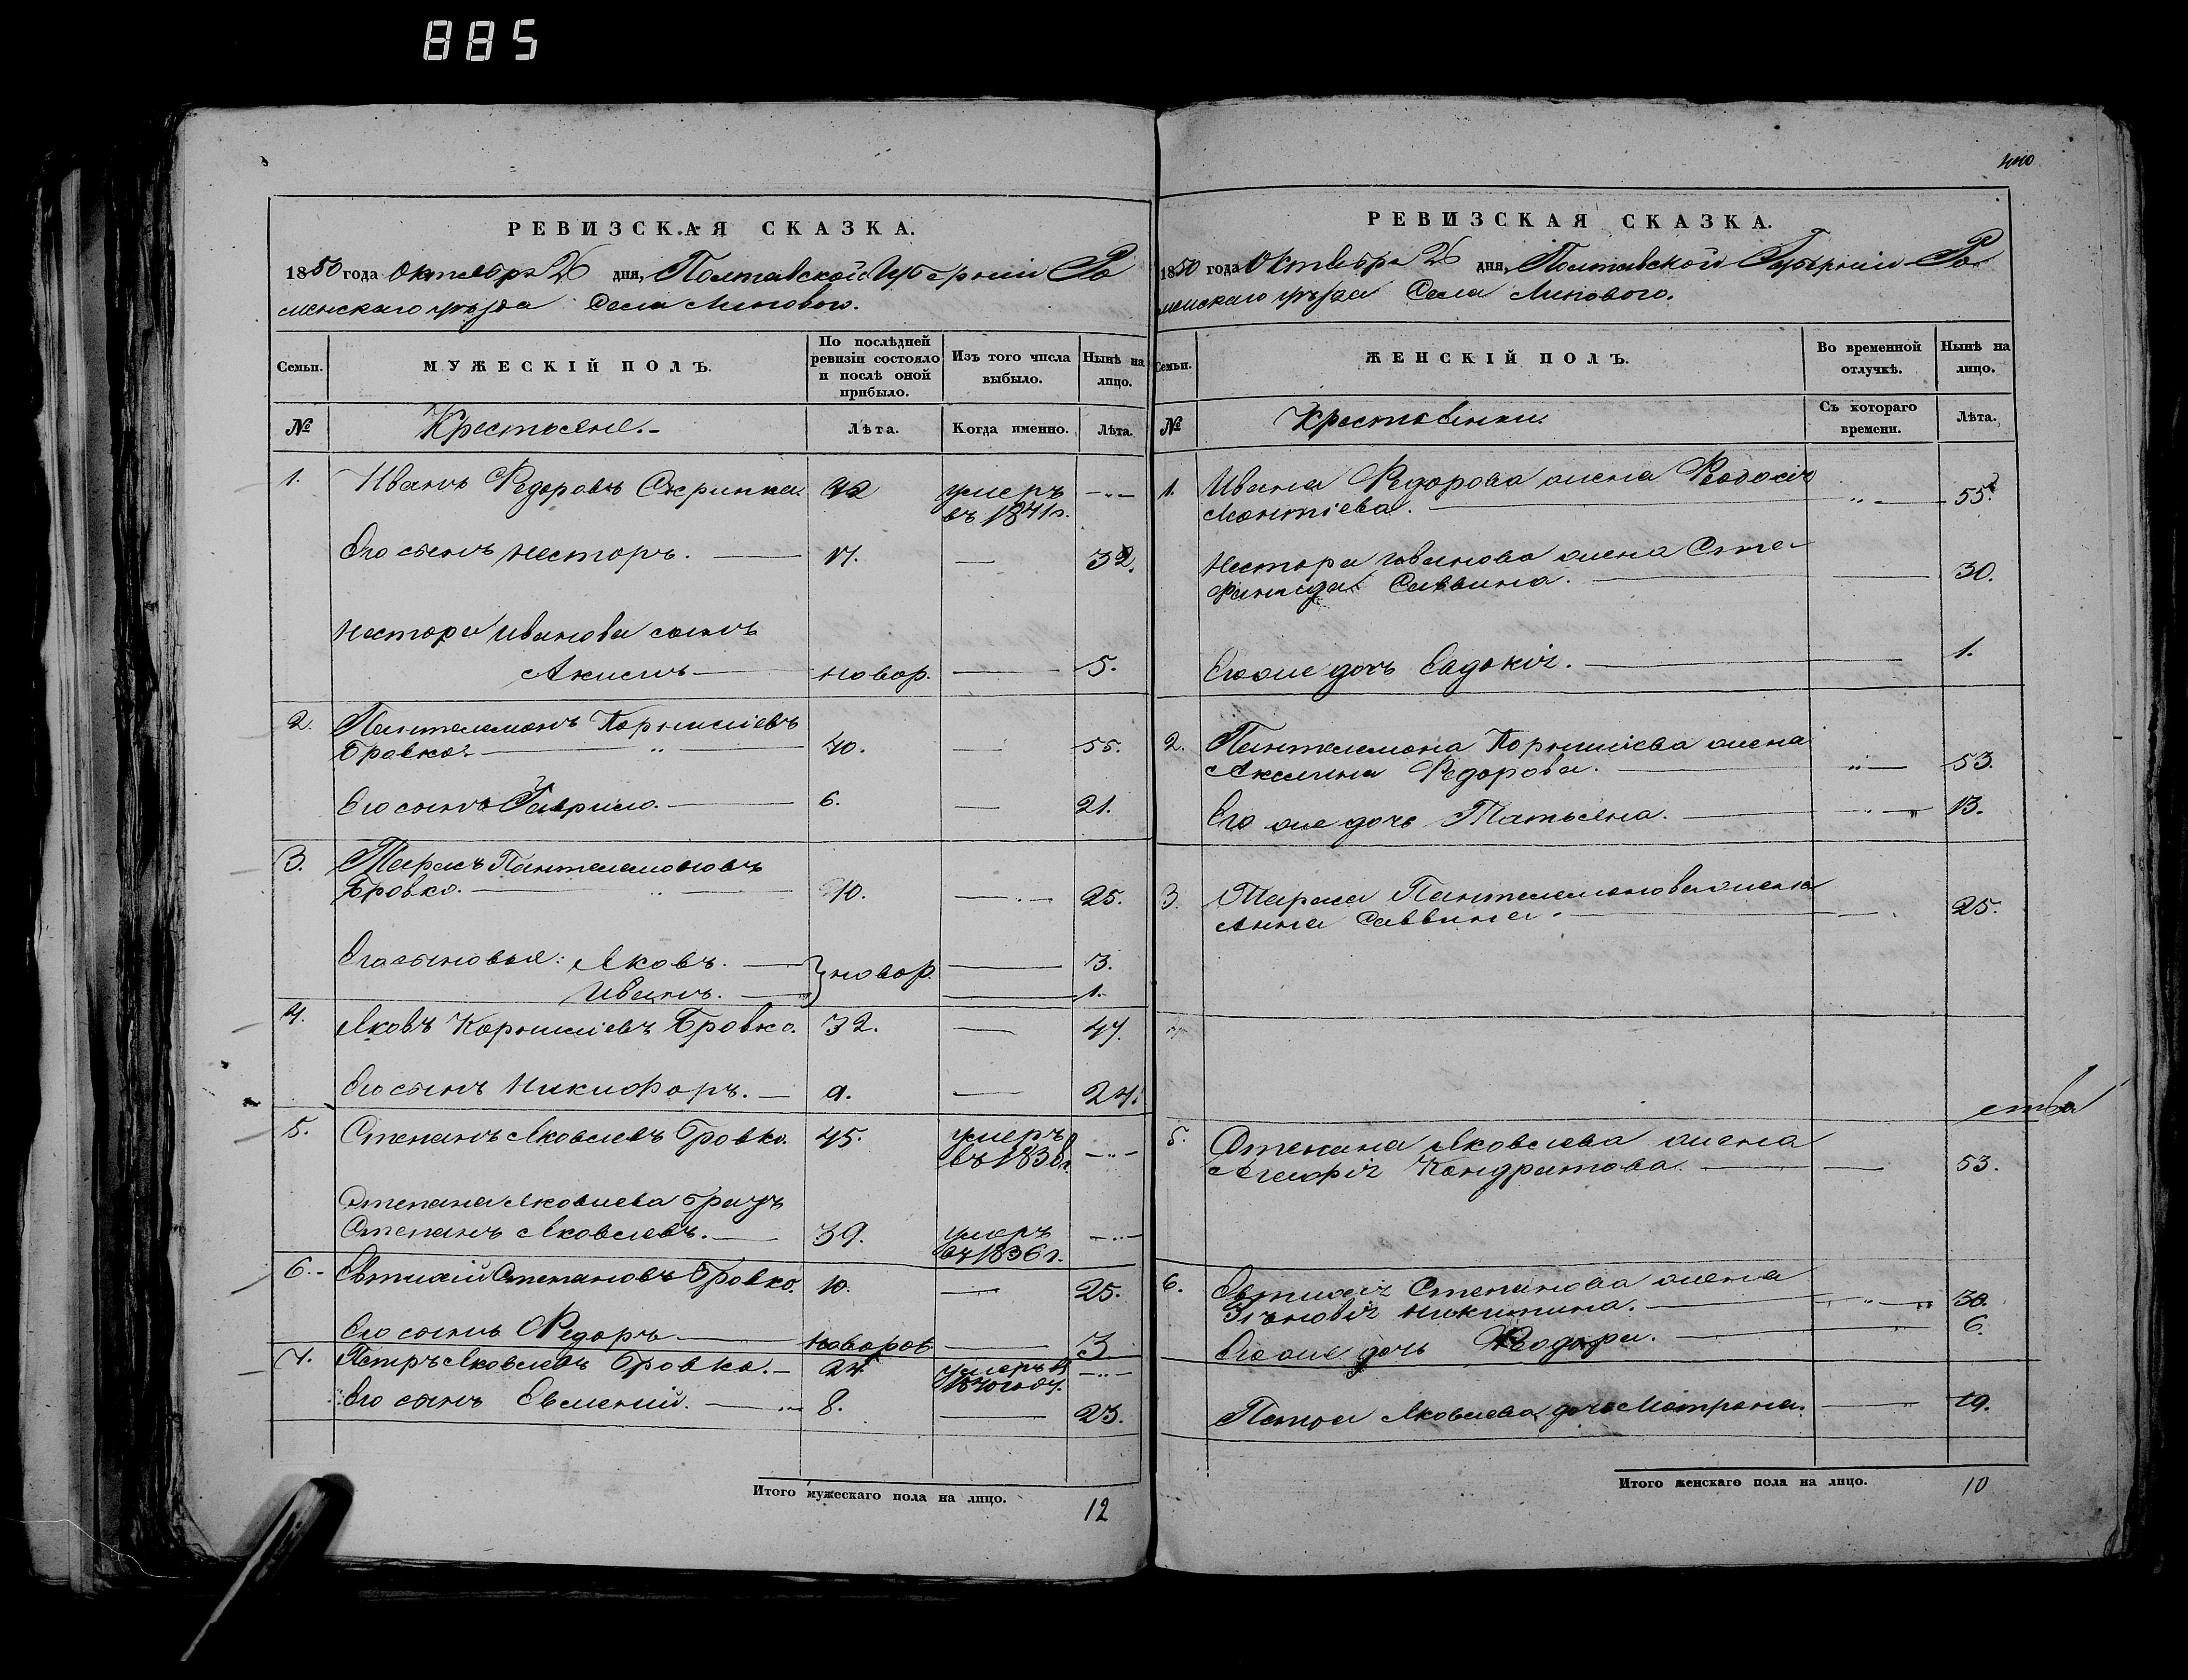 885
440
РЕВИЗСКАЯ СКАЗКА.
1850 года Октября 26 дня, Полтавской Губерніи Ро
менскаго уѣзда Села Липоваго.
Семьи.
МУЖЕСКІЙ ПОЛЪ.
По послѣдней ревизіи состояло и послѣ оной прибыло.
Изъ того числа выбыло.
Нынѣ на лицо.
№ Крестьяне. Лѣта. Когда именно. Лѣта.
1. Иванъ Федоровъ 42 умеръ
въ 1841г.
Его сынъ Несторъ. 17. — 32.
Нестора Иванова сынъ
Акимъ новор. — 5.
2. Пантелемонъ Корниліевъ
Бровко. 40. — 55.
Его сынъ Гаврило. 6. — 21.
3. Тарасъ Пантелемоновъ
Бровко. 10. — 25.
Его сыновья: Яковъ. новор. — 3.
Иванъ. — 1.
4. Яковъ Корниліевъ Бровко. 32. — 47.
Его сынъ Никифоръ. 9. — 24.
5. Степанъ Яковлевъ Бровко. 45. умеръ
въ 183
Степана Яковлева братъ
Степанъ Яковлевъ. 39. умеръ
въ 1836г.
6. Евтихій Степановъ Бровко. 10. — 25.
Его сынъ Федоръ новорож — 3
7. Петръ Яковлевъ Бровко. 27. умеръ въ
1840 году.
Его сынъ Евмений. 8. — 23.
Итого мужескаго пола на лицо. 12
РЕВИЗСКАЯ СКАЗКА.
1850 года Октября 26 дня, Полтавской Губерніи Ро
менскаго уѣзда Села Липоваго.
Семьи.
ЖЕНСКІЙ ПОЛЪ.
Во временной отлучкѣ.
Нынѣ на лицо.
№ Крестьянки. Съ котораго времени. Лѣта.
1. Ивана Федорова жена Феодосія
Леонтіева. 55.
Нестора Иванова жена Сте-
фанида Саввина. 30.
Его же дочь Евдокія. 1.
2. Пантелемона Корниліева жена
Акилина Федорова. 53.
Его же дочь Татьяна. 13.
3. Тараса Пантелемонова жена
Анна Саввина. 25.
4
5. Степана Яковлева жена
Агафія Кондратова. 53.
6. Евтихія Степанова жена
Зѣновія Никитина. 30.
Его же дочь Феодора. 6.
Петра Яковлева дочь Матрона. 19.
Итого женскаго пола на лицо. 10
ства